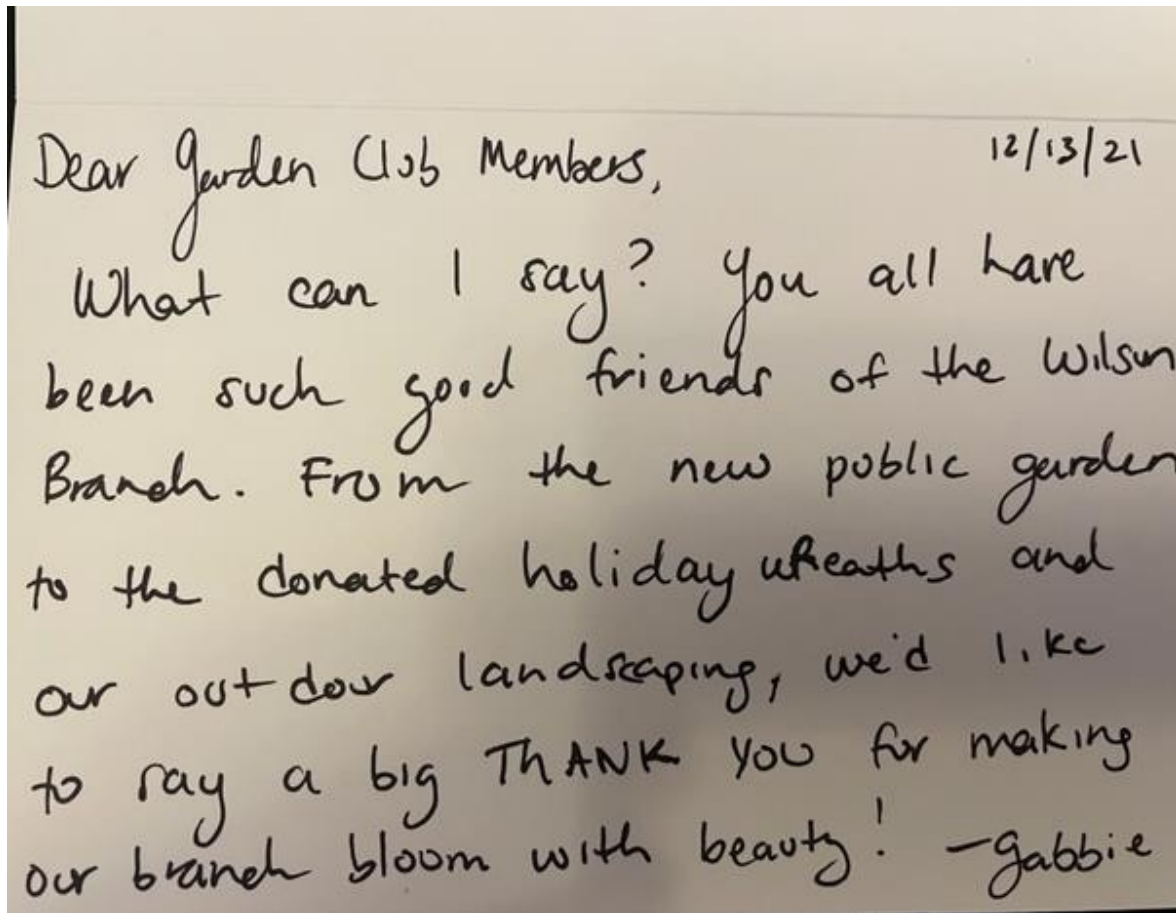 Dear Garden Club Members, 12/13/21
What can I say? You all have
been such good friends of the Wilson
Branch. From the new public garden
to the donated holiday wreaths and
our outdoor landscaping, we'd like
to say a big THANK YOU for making
our branch bloom with beauty! -Gabbie